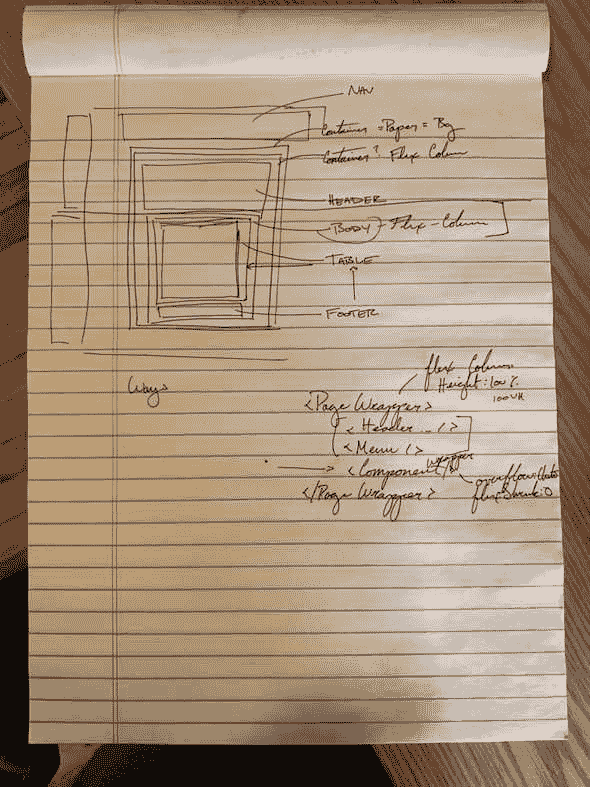 NAV
Container = Paper = Bg
Container? Flex Column
HEADER
BODY - Flex - Column
TABLE
FOOTER
Ways
flex Column
Height: 100%
100VH
<Page Wrapper>
<Header />
<Menu />
<Component Wrapper />
overflow: Auto
flex Shrink: 0
</Page Wrapper>